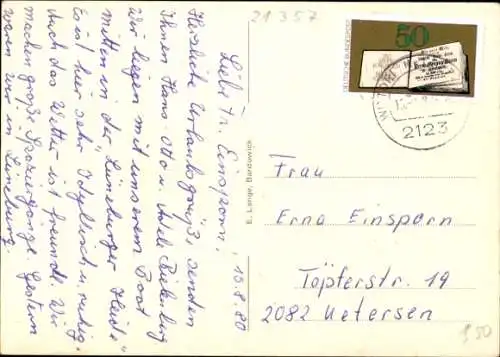 21357
Liebe Fr. Einsporn, 15.8.80
Herzliche Urlaubsgrüße, senden
Ihnen Hans-Otto u.
Wir liegen mit unserem Boot
mitten in der "Lüneburger Heide"
Es ist hier sehr idyllisch u. ruhig.
Auch das Wetter ist freundl. Wir
machen große Spaziergänge. Gestern
waren wir in Lüneburg.
E. Lange, Bardowick
DEUTSCHE BUNDESPOST
50
2123
Frau
Erna Einsparn
Töpferstr. 19
2082 Uetersen